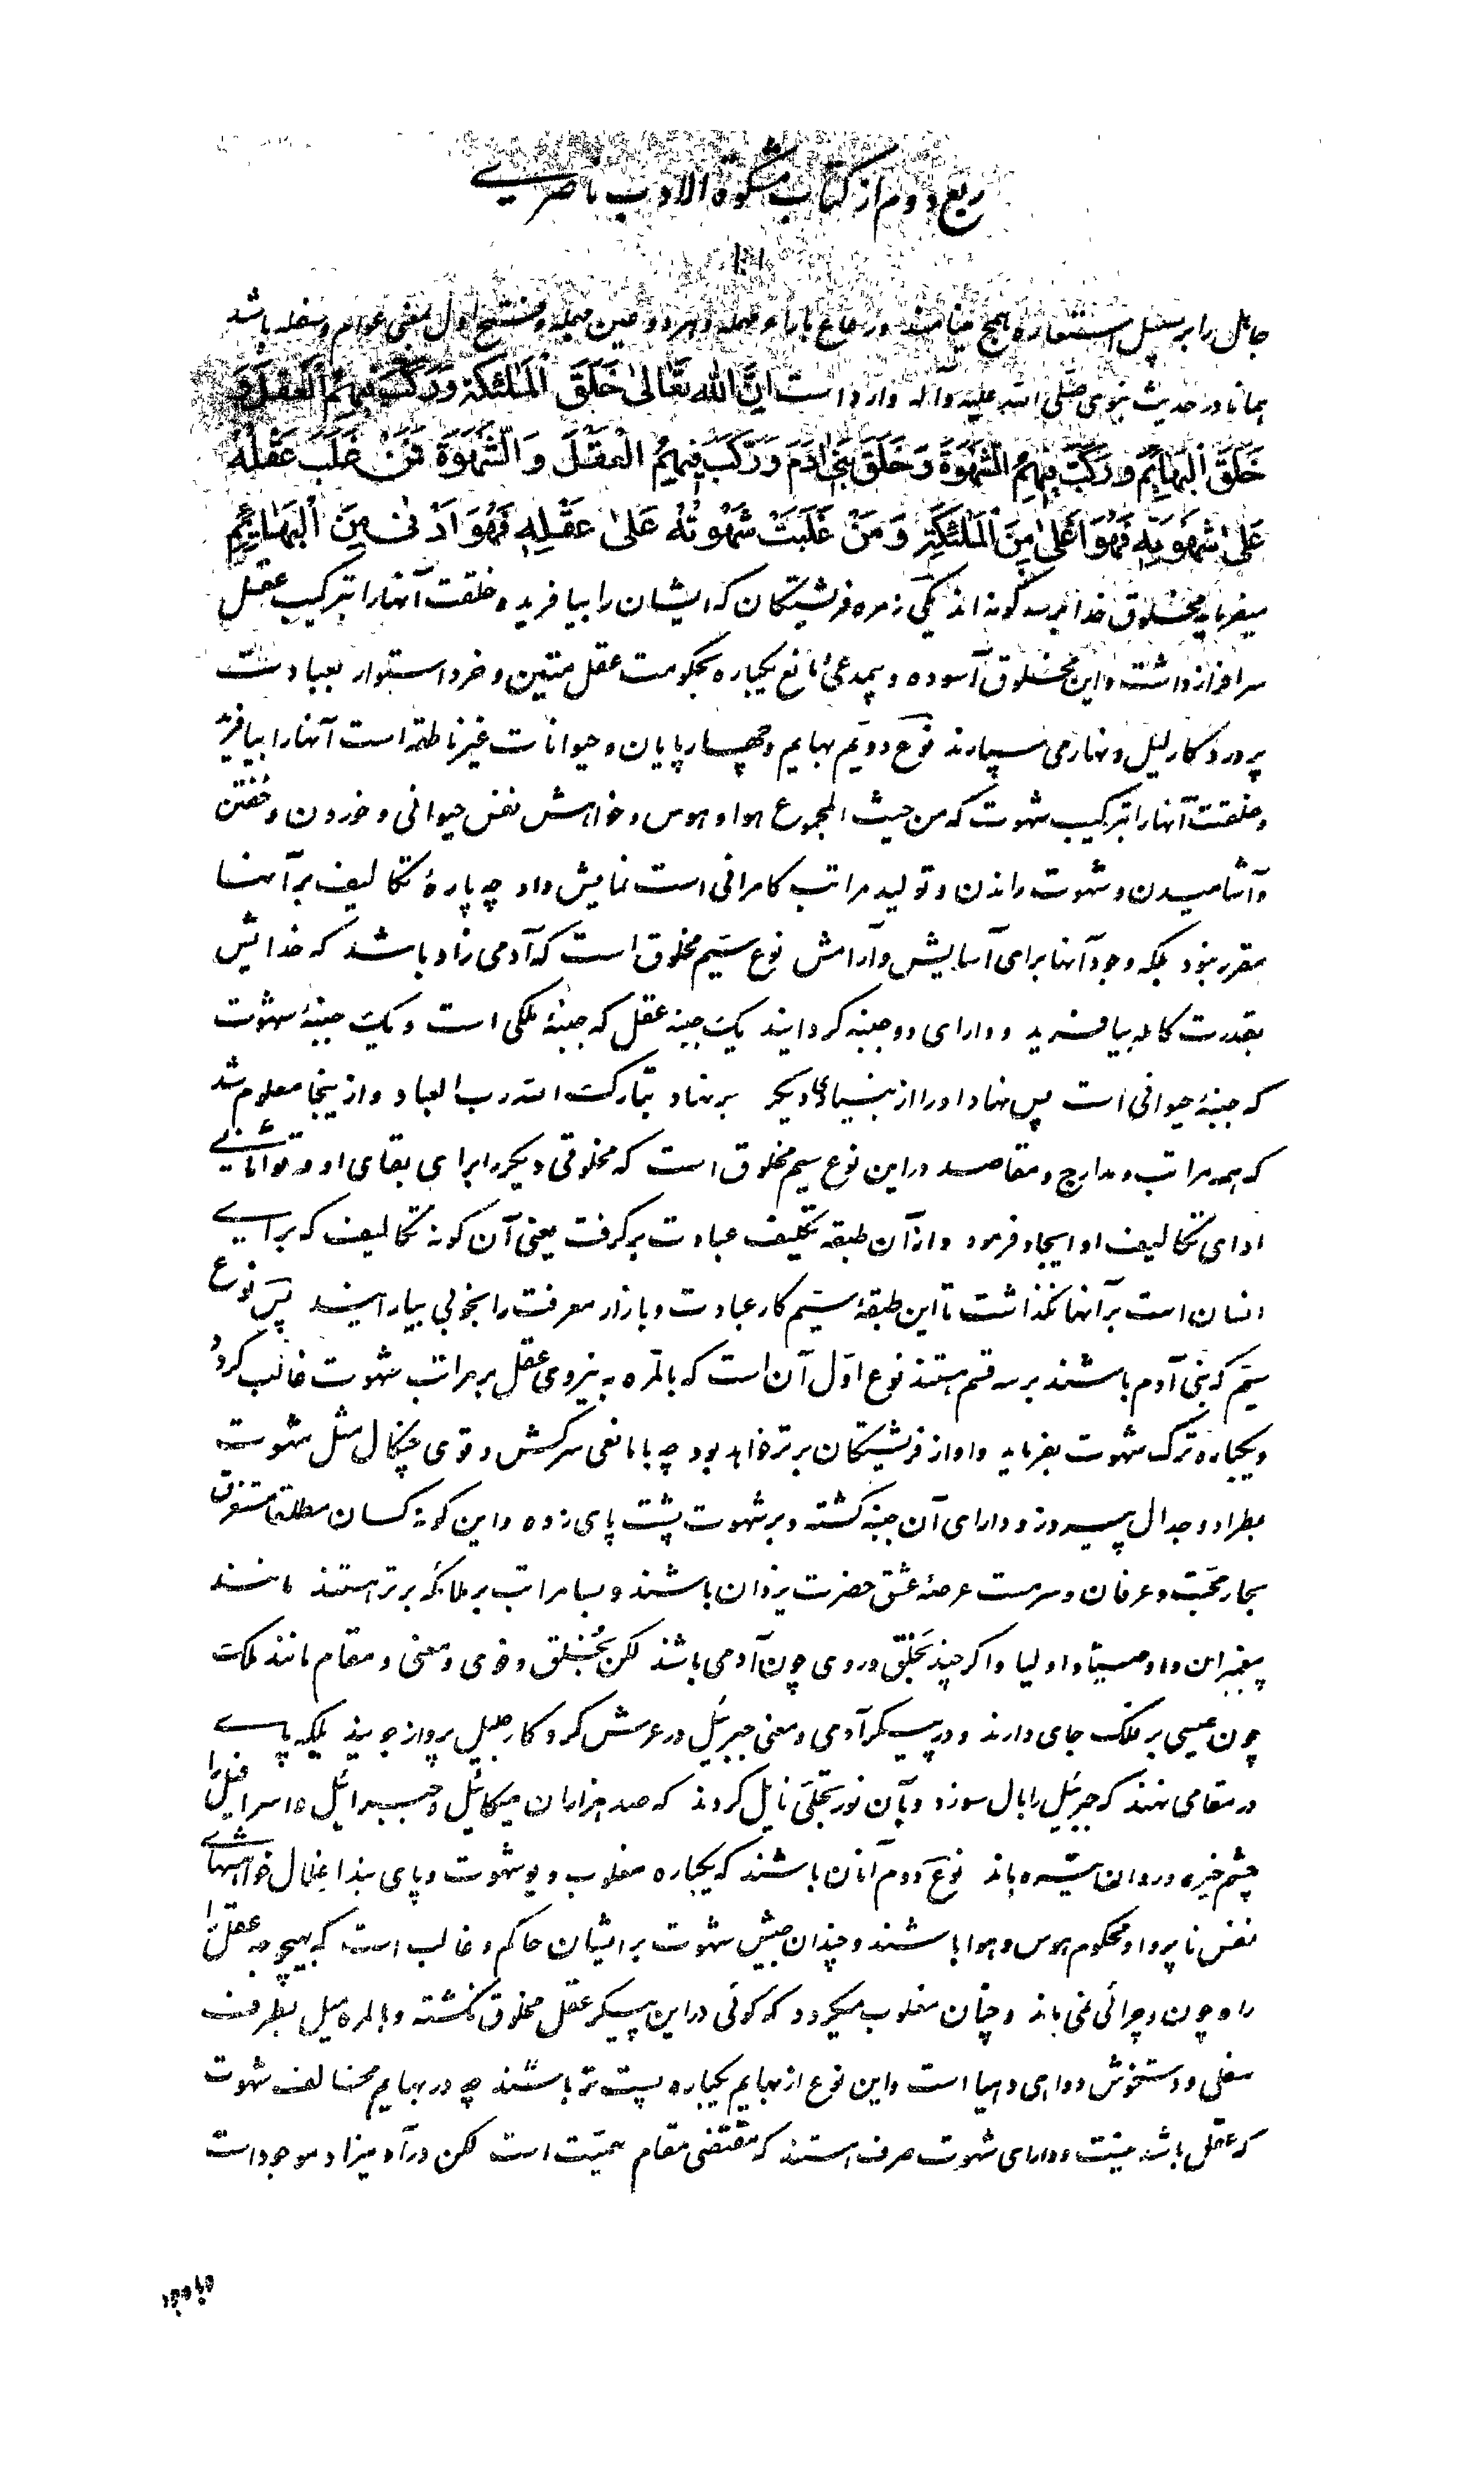 ربع دوم از کتاب مشکوة الادب ناصری
جاهل را بر سبیل استعاره همج مینامند ورعاع بارا و مهمله و هر دو عین مهمله و فتح اول بمعنی عوام و سفله باشد
همانا در حدیث نبوی صلی الله علیه وآله وارد است اِنَّ اللهَ تَعَالیٰ خَلَقَ الْمَلٰئِکَةَ وَرَکَّبَ فِیهِمُ الْعَقْلَ وَ
خَلَقَ الْبَهَایِمَ وَرَکَّبَ فِیهِمُ الشَّهْوَةَ وَخَلَقَ بَنِی اٰدَمَ وَرَکَّبَ فِیهِمُ الْعَقْلَ وَالشَّهْوَةَ فَمَنْ غَلَبَ عَقْلُهُ
عَلیٰ شَهْوَتِهِ فَهُوَ اَعْلیٰ مِنَ الْمَلٰئِکَةِ وَمَنْ غَلَبَتْ شَهْوَتُهُ عَلیٰ عَقْلِهِ فَهُوَ اَدْنیٰ مِنَ الْبَهَائِمِ
میفرماید مخلوق خدا بر سه گونه اند یکی زمره فرشتگان که ایشان را بیافرید و خلقت آنها را بترکیب عقل
سرافراز داشت و این مخلوق آسوده و بیمدعی مانع یکباره بحکومت عقل متین و خرد استوار بعبادت
پروردگار لیل و نهار می سپارند نوع دویم بهایم و چهارپایان و حیوانات غیر ناطقه است آنها را بیافرید
و خلقت آنها را بترکیب شهوت که من حیث المجموع هوا و هوس و خواهش نفس حیوانی و خوردن و خفتن
و آشامیدن و شهوت راندن و تولید مراتب کامرانی است نمایش داد چه پارهٔ تکالیف بر آنها
مقرر نبود بلکه وجود آنها برای آسایش و آرامش نوع سیم مخلوق است که آدمی زاد باشد که خدایش
بقدرت کامله بیافرید و دارای دو جنبه گردانید یک جنبه عقل که جنبهٔ ملکی است و یک جنبهٔ شهوت
که جنبهٔ حیوانی است پس نهاد او را از بنیادی دیگر بر نهاد تبارک الله رب العباد و از اینجا معلوم شد
که همه مراتب و مدارج و مقاصد در این نوع سیم مخلوق است که مخلوقی دیگر را برای بقای او و توانائی
ادای تکالیف او ایجاد فرمود و از آن طبقه تکلیف عبادت بر گرفت یعنی آن گونه تکالیف که برای
انسان است بر آنها نگذاشت تا این طبقهٔ سیم کار عبادت و بازار معرفت را بخوبی بیارایند پس نوع
سیم که بنی آدم باشند بر سه قسم هستند نوع اول آن است که بالمره به نیروی عقل بر مراتب شهوت غالب گردد
و یکباره ترک شهوت بفرماید و او از فرشتگان برتر خواهد بود چه با مانعی سرکش و قوی چنگال مثل شهوت
بطراد و جدال پیروز و دارای آن جنبه گشته و بر شهوت پشت پای زده و این گونه کسان مطلقا مستغرق
بحار محبت و عرفان و سرمست عرصهٔ عشق حضرت یزدان باشند و بسا مراتب بر ملائکه برتر هستند مانند
پیغمبران و اوصیاء و اولیا و اگر چند بخلق و روی چون آدمی باشند لکن بخلق و خوی و معنی و مقام مانند ملک
چون عیسی بر فلک جای دارند و در پیکر آدمی و معنی جبرئیل در عرش کردگار جلیل پرواز جویند بلکه پای
در مقامی نهند که جبرئیل را بال سوزد و بآن نور تجلی نایل گردند که صد هزاران میکائیل و جبرائیل و اسرافیل را
چشم خیره و روان تیره ماند نوع دوم آنان باشند که یکباره مغلوب دیو شهوت و پای بند اغلال خواهشهای
نفس ناپروا و محکوم هوس و هوا باشند و چندان جیش شهوت بر ایشان حاکم و غالب است که بهیچوجه عقل را
راه چون و چرائی نمی ماند و چنان مغلوب میگردد که گوئی در این پیکر عقل مخلوق نگشته و بالمره میل بطرف
سفلی و دستخوش دواهی دهیا است و این نوع از بهایم یکباره پست تر باشند چه در بهایم مخالف شهوت
که عقل باشد نیست و دارای شهوت صرف هستند که مقتضی مقام بهیمیت است لکن در آدمیزاد موجود است
وبا وجود